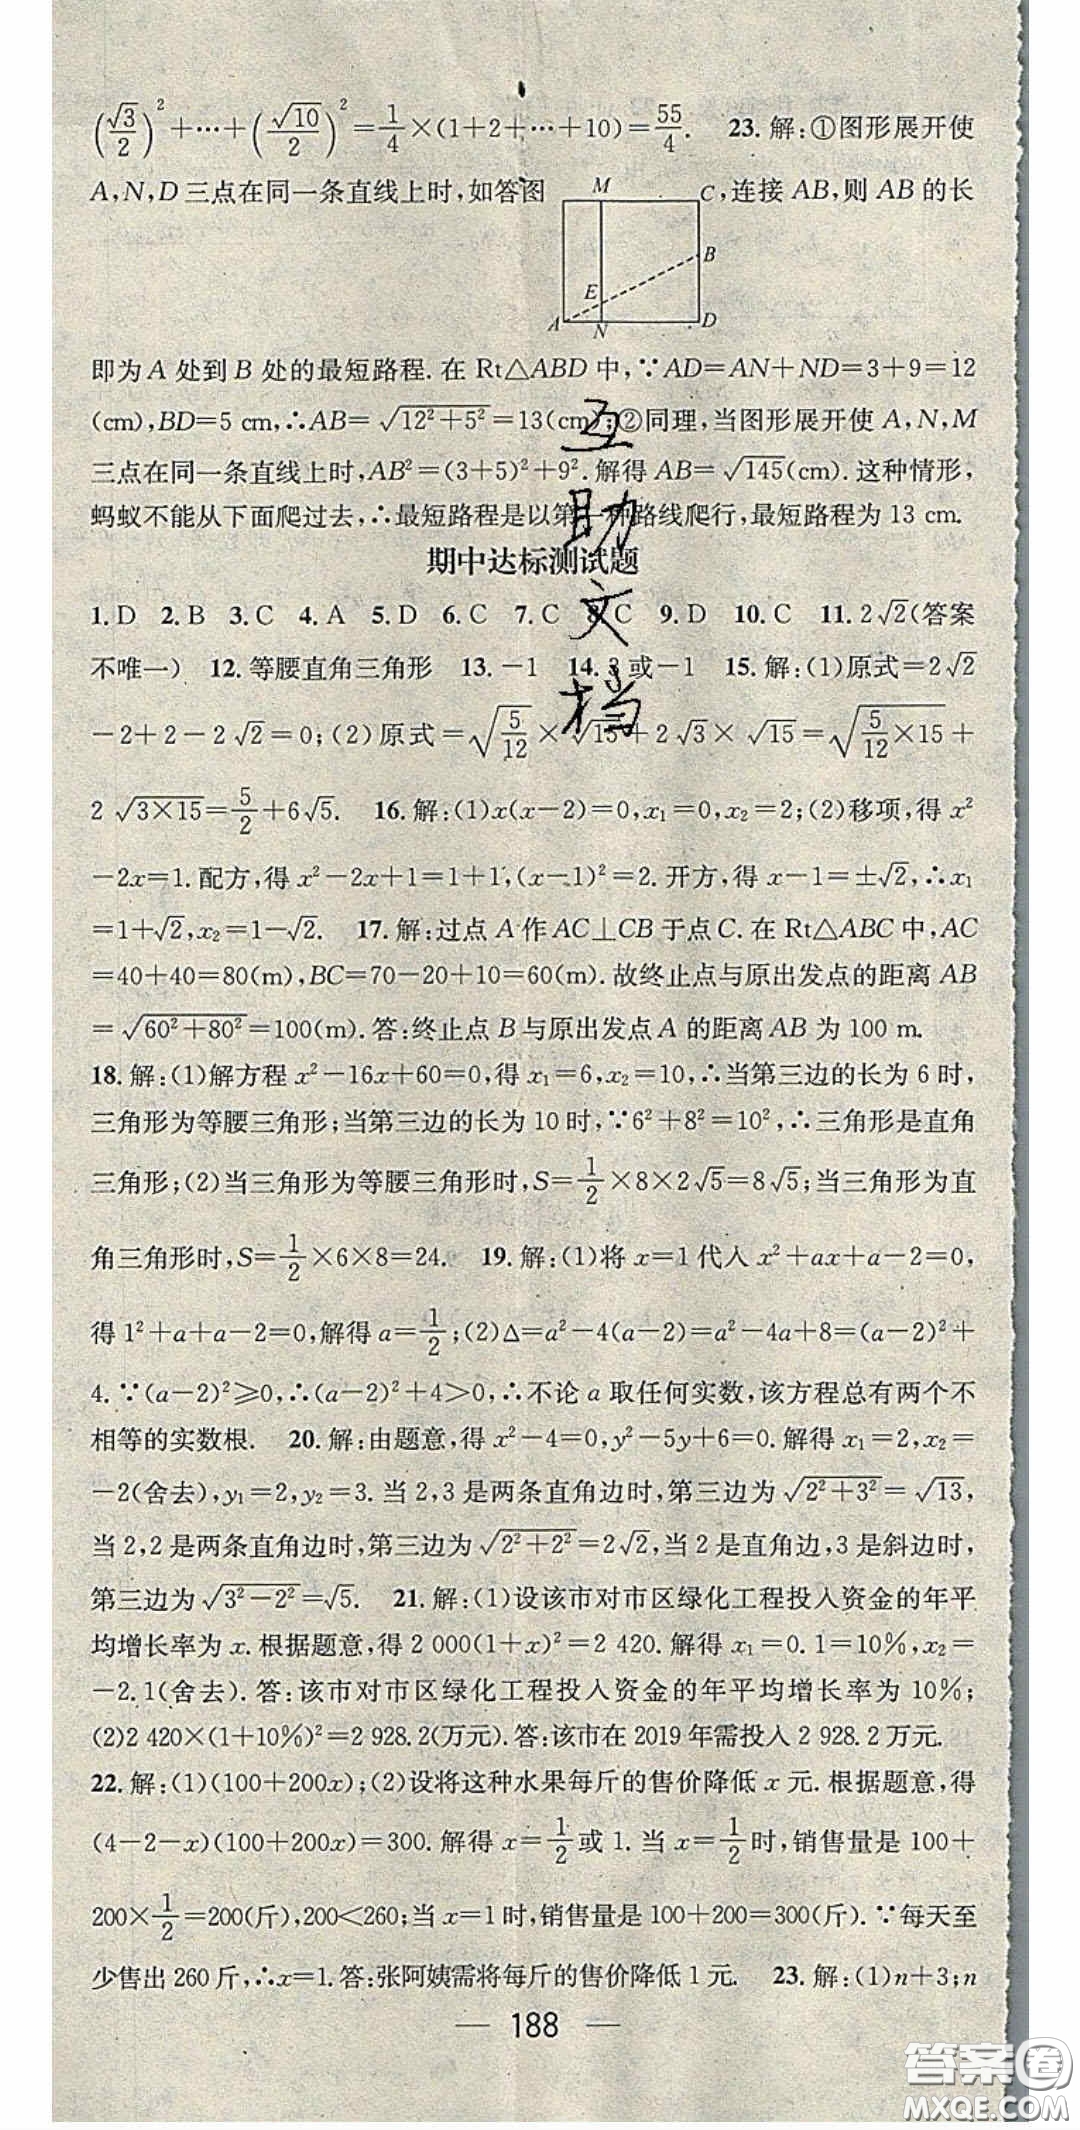 (√3/2)²+…+(√10/2)²=1/4×(1+2+…+10)=55/4. 23. 解:①图形展开使
A,N,D 三点在同一条直线上时,如答图 ,连接 AB,则 AB 的长
M C
B
E
A N D
即为 A 处到 B 处的最短路程. 在 Rt△ABD 中,∵AD=AN+ND=3+9=12
(cm),BD=5 cm,∴AB=√(12²+5²)=13(cm);②同理,当图形展开使 A,N,M
三点在同一条直线上时,AB²=(3+5)²+9². 解得 AB=√145(cm). 这种情形,
蚂蚁不能从下面爬过去,∴最短路程是以第一种路线爬行,最短路程为 13 cm.
期中达标测试题
1. D 2. B 3. C 4. A 5. D 6. C 7. C 8. C 9. D 10. C 11. 2√2(答案
不唯一) 12. 等腰直角三角形 13. −1 14. 3 或−1 15. 解:(1)原式=2√2
−2+2−2√2=0;(2)原式=√(5/12)×√15+2√3×√15=√(5/12×15)+
2√(3×15)=5/2+6√5. 16. 解:(1)x(x−2)=0,x₁=0,x₂=2;(2)移项,得 x²
−2x=1. 配方,得 x²−2x+1=1+1,(x−1)²=2. 开方,得 x−1=±√2,∴x₁
=1+√2,x₂=1−√2. 17. 解:过点 A 作 AC⊥CB 于点 C. 在 Rt△ABC 中,AC
=40+40=80(m),BC=70−20+10=60(m). 故终止点与原出发点的距离 AB
=√(60²+80²)=100(m). 答:终止点 B 与原出发点 A 的距离 AB 为 100 m.
18. 解:(1)解方程 x²−16x+60=0,得 x₁=6,x₂=10,∴当第三边的长为 6 时,
三角形为等腰三角形;当第三边的长为 10 时,∵6²+8²=10²,∴三角形是直角
三角形;(2)当三角形为等腰三角形时,S=1/2×8×2√5=8√5;当三角形为直
角三角形时,S=1/2×6×8=24. 19. 解:(1)将 x=1 代入 x²+ax+a−2=0,
得 1²+a+a−2=0,解得 a=1/2;(2)Δ=a²−4(a−2)=a²−4a+8=(a−2)²+
4. ∵(a−2)²≥0,∴(a−2)²+4>0,∴不论 a 取任何实数,该方程总有两个不
相等的实数根. 20. 解:由题意,得 x²−4=0,y²−5y+6=0. 解得 x₁=2,x₂=
−2(舍去),y₁=2,y₂=3. 当 2,3 是两条直角边时,第三边为√(2²+3²)=√13,
当 2,2 是两条直角边时,第三边为√(2²+2²)=2√2,当 2 是直角边,3 是斜边时,
第三边为√(3²−2²)=√5. 21. 解:(1)设该市对市区绿化工程投入资金的年平
均增长率为 x. 根据题意,得 2 000(1+x)²=2 420. 解得 x₁=0. 1=10%,x₂=
−2. 1(舍去). 答:该市对市区绿化工程投入资金的年平均增长率为 10%;
(2)2 420×(1+10%)²=2 928. 2(万元). 答:该市在 2019 年需投入 2 928. 2 万元.
22. 解:(1)(100+200x);(2)设将这种水果每斤的售价降低 x 元. 根据题意,得
(4−2−x)(100+200x)=300. 解得 x=1/2或 1. 当 x=1/2时,销售量是 100+
200×1/2=200(斤),200<260;当 x=1 时,销售量是 100+200=300(斤). ∵每天至
少售出 260 斤,∴x=1. 答:张阿姨需将每斤的售价降低 1 元. 23. 解:(1)n+3;n
— 188 —
互
助
文
档
答案圈
MXQE.COM